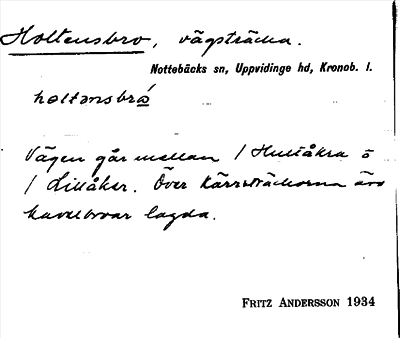 Holtensbro, vägsträcka.
Nottebäcks sn, Uppvidinge hd, Kronob. l.
holtənsbró
Vägen går mellan / Hultåkra o
/ Lillåker. Över kärrsträckorna äro
kavelbroar lagda.
FRITZ ANDERSSON 1934